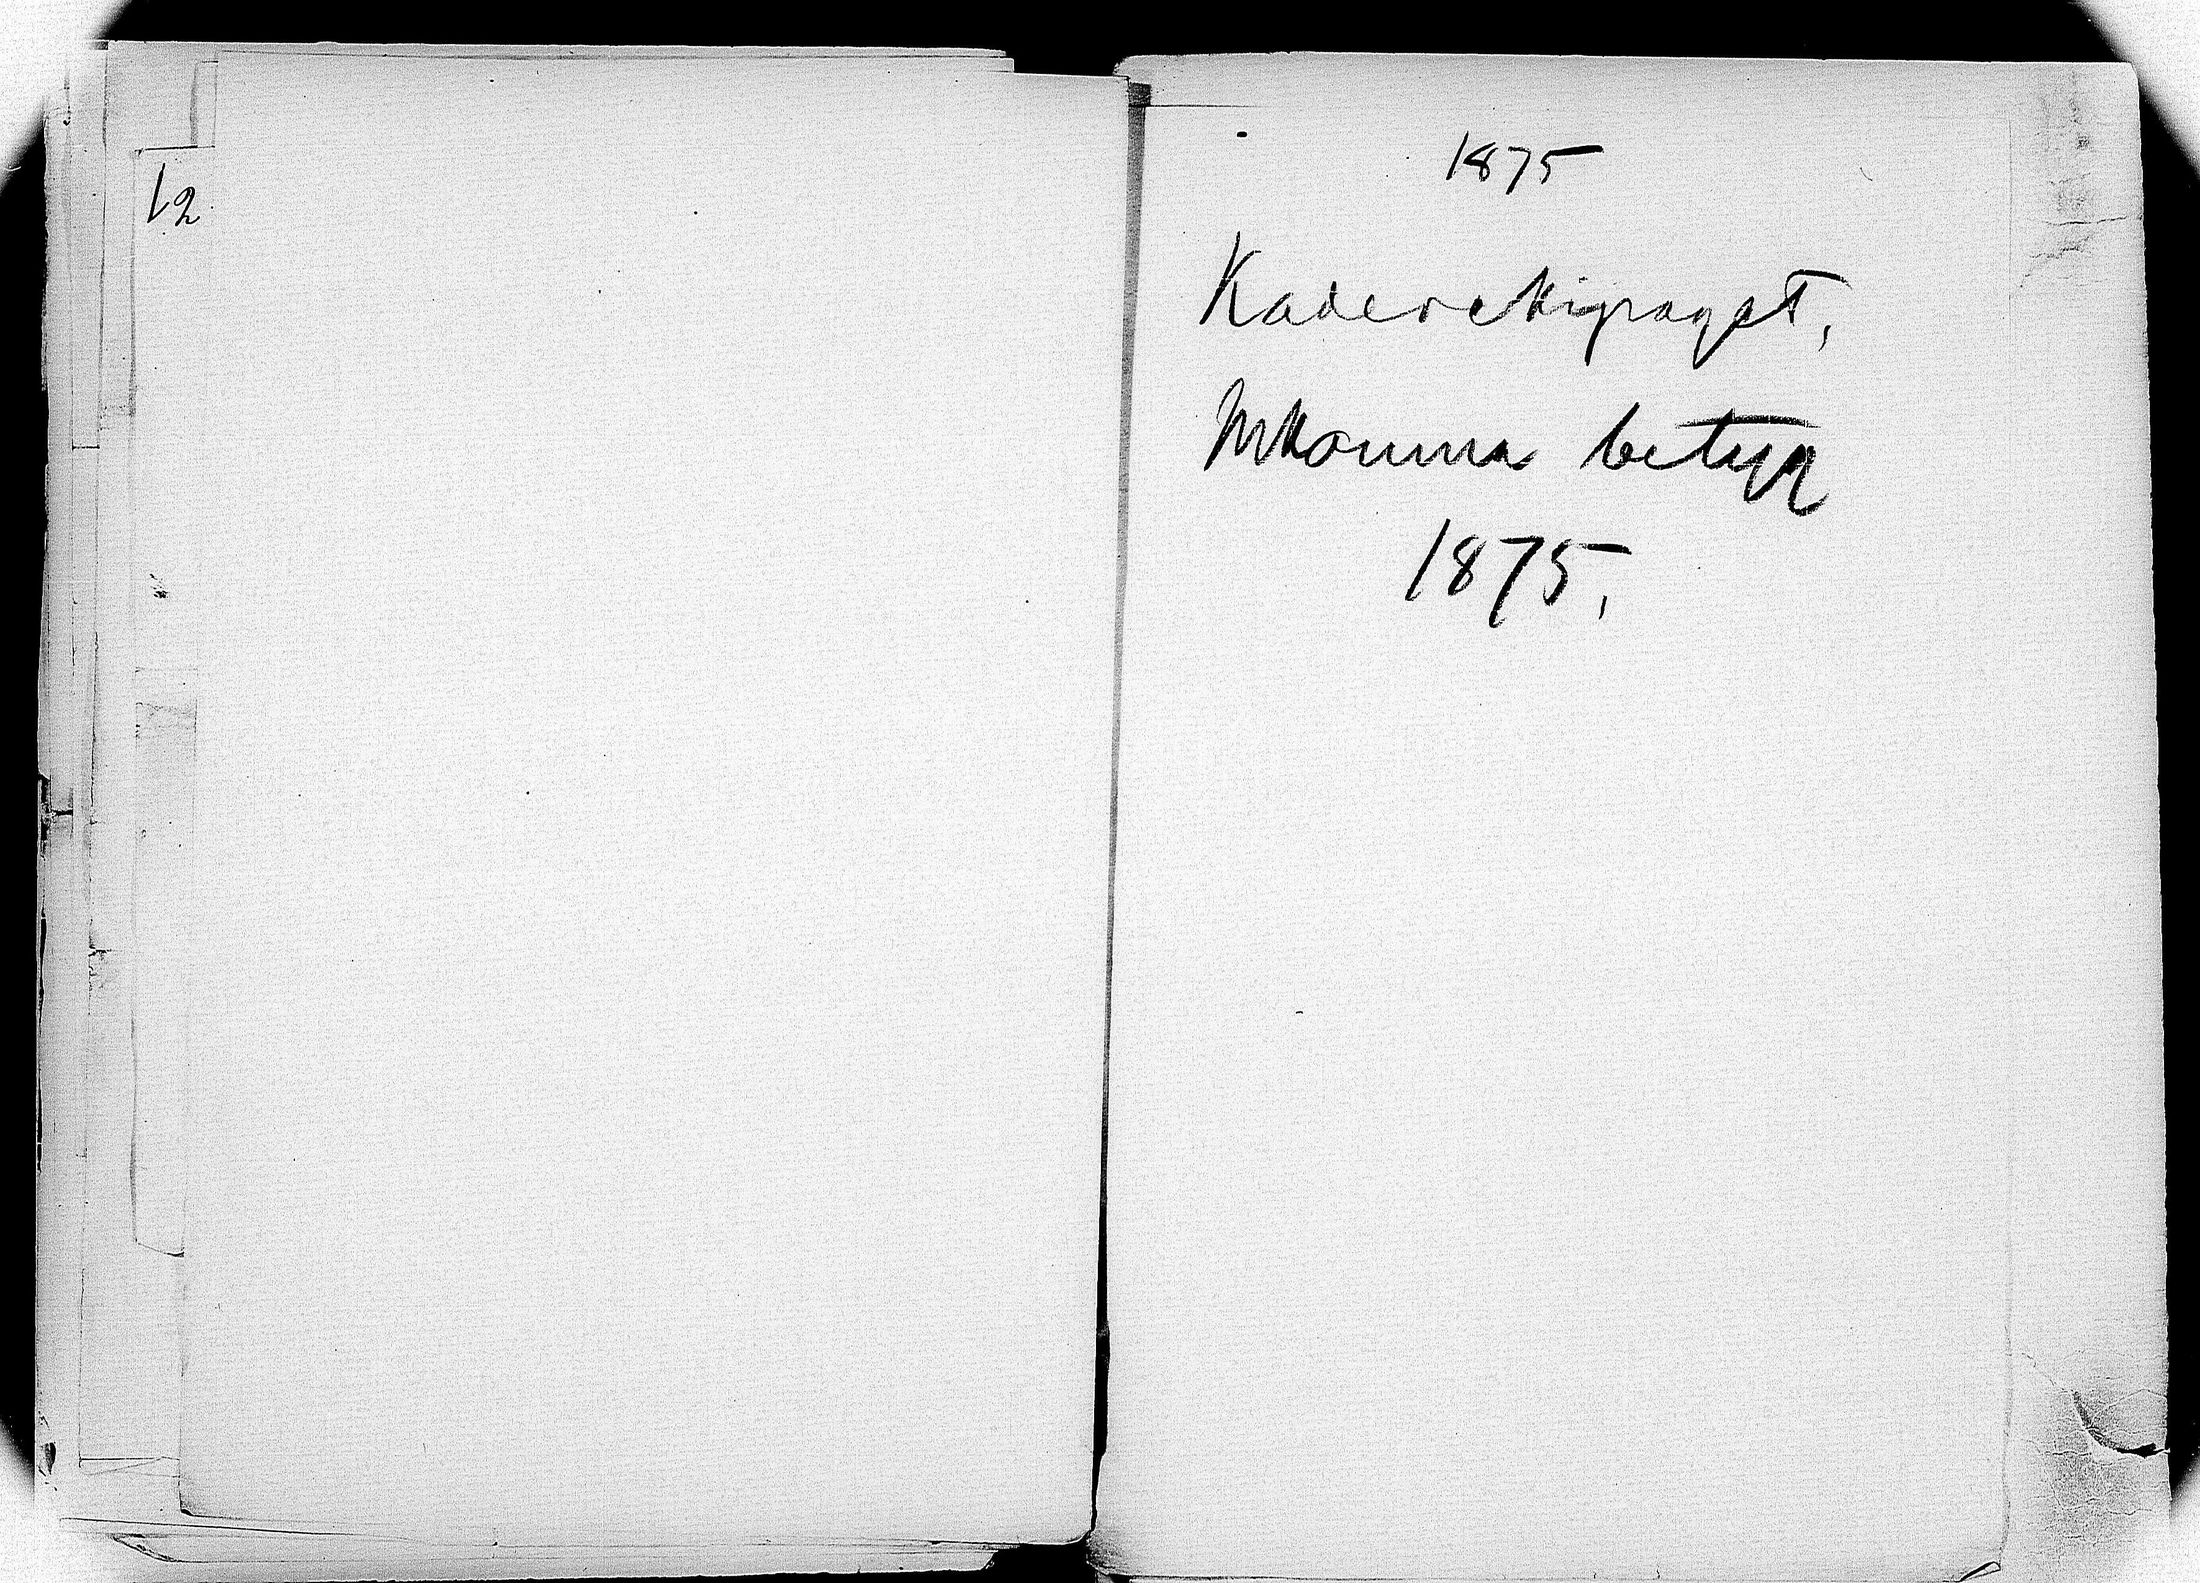 12
1875
Kaderekipaget,
Inkomna betyg
1875,